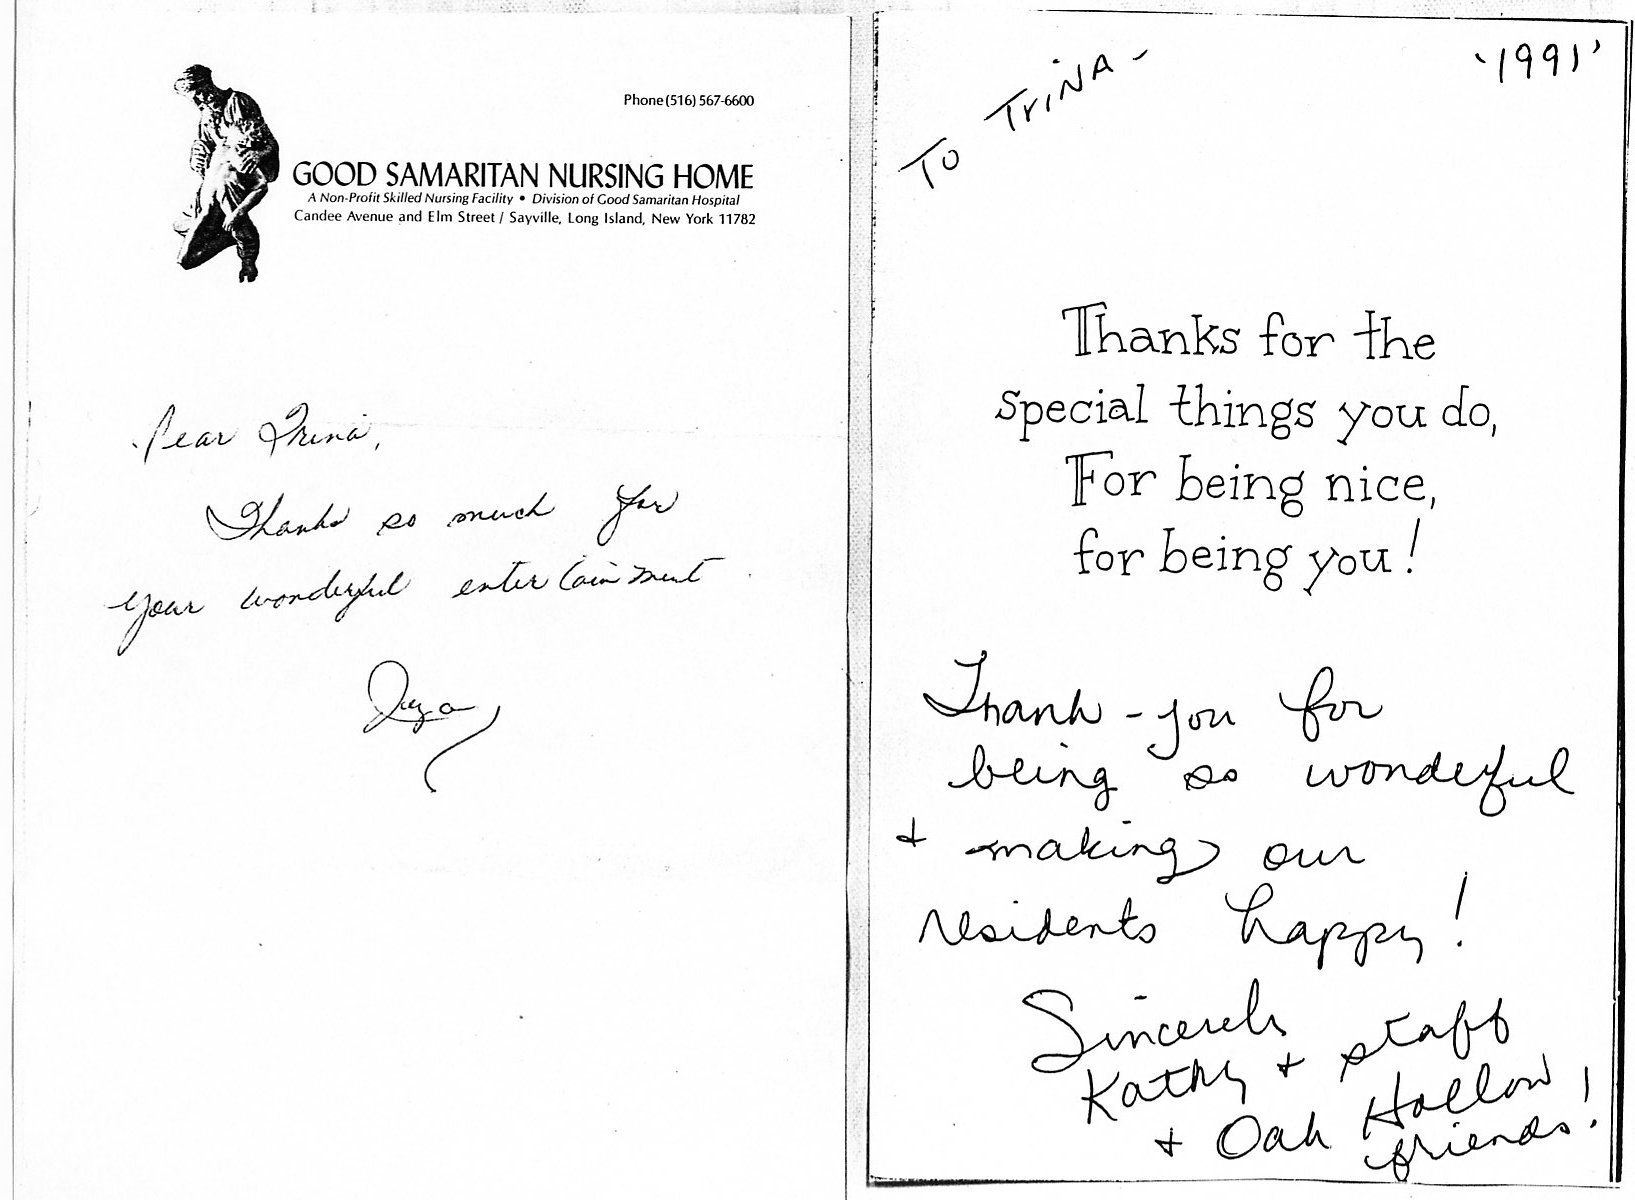 Phone (516) 567-6600
GOOD SAMARITAN NURSING HOME
A Non-Profit Skilled Nursing Facility • Division of Good Samaritan Hospital
Candee Avenue and Elm Street / Sayville, Long Island, New York 11782
Dear Trina,
Thanks so much for
your wonderful entertainment
To TriNA -
'1991'
Thanks for the
special things you do,
For being nice,
for being you!
Thank-you for
being so wonderful
+ making our
residents happy!
Sincerely
Kathy + staff
+ Oak Hollow
friends!